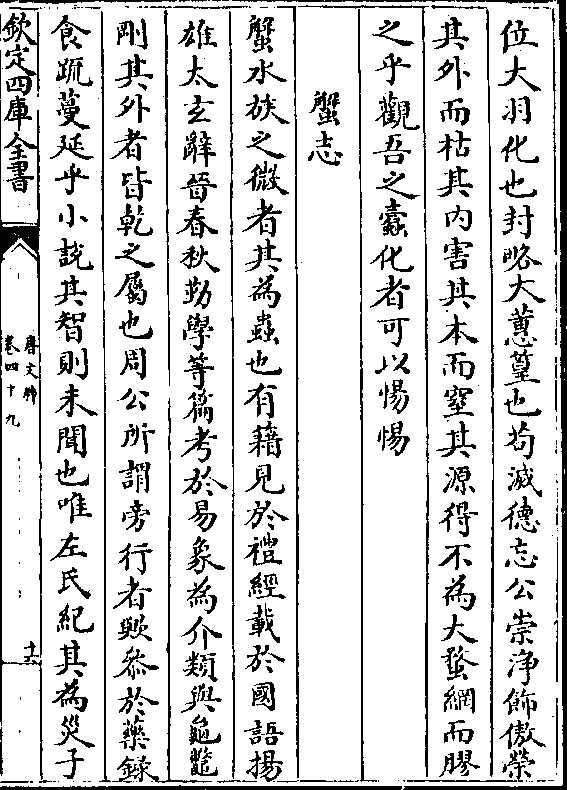 位大羽化也封略大蕙篁也苟滅德忘公崇浄飾傲榮
其外而枯其内害其本而窒其源得不為大蝥網而膠
之乎觀吾之蠹化者可以惕惕
蟹志
蟹水族之微者其為蟲也有籍見於禮經載於國語揚
雄太玄辭晉春秋勸學等篇考於易象為介類與龜鼈
剛其外者皆乾之屬也周公所謂旁行者歟叅於藥録
食䟽蔓延乎小説其智則未聞也唯左氏紀其為災子
欽定四庫全書
唐文粹
卷四十九
十六